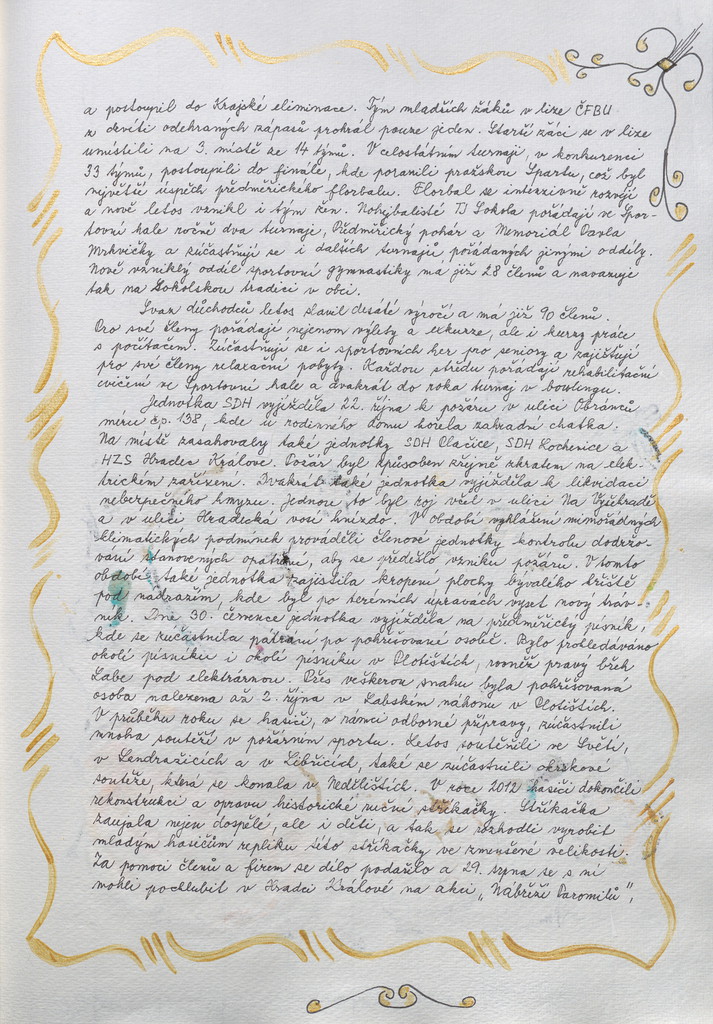 a postoupil do Krajské eliminace. Tým mladších žáků v lize ČFBU
z devíti odehraných zápasů prohrál pouze jeden. Starší žáci se v lize
umístili na 3. místě ze 14 týmů. V celostátním turnaji, v konkurenci
33 týmů, postoupili do finále, kde porazili pražskou Spartu, což byl
největší úspěch předměřického florbalu. Florbal se intenzivně rozvíjí
a nově letos vznikl i tým žen. Nohejbalisté TJ Sokola pořádají ve Spor-
tovní hale ročně dva turnaje, Předměřický pohár a Memoriál Pavla
Mrkvičky a zúčastňují se i dalších turnajů, pořádaných jinými oddíly.
Nově vzniklý oddíl sportovní gymnastiky má již 28 členů a navazuje
tak na Sokolskou tradici v obci.
Svaz důchodců letos slavil desáté výročí a má již 90 členů.
Pro své členy pořádají nejenom výlety a exkurze, ale i kurzy práce
s počítačem. Zúčastňují se i sportovních her pro seniory a zajišťují
pro své členy relaxační pobyty. Každou středu pořádají rehabilitační
cvičení ve Sportovní hale a dvakrát do roka turnaj v bowlingu.
Jednotka SDH vyjížděla 22. října k požáru v ulici Obránců
míru čp. 138, kde u rodinného domu hořela zahradní chatka.
Na místě zasahovaly také jednotky SDH Plačice, SDH Lochenice a
HZS Hradec Králové. Požár byl způsoben zřejmě zkratem na elek-
trickém zařízení. Dvakrát také jednotka vyjížděla k likvidaci
nebezpečného hmyzu. Jednou to byl roj včel v ulici Na Vyšehradě
a v ulici Hradecká vosí hnízdo. V období vyhlášení mimořádných
klimatických podmínek prováděli členové jednotky kontrolu dodržo-
vání stanovených opatření, aby se předešlo vzniku požárů. V tomto
období také jednotka zajistila kropení plochy bývalého hřiště
pod nádražím, kde byl po terénních úpravách vyset nový tráv-
ník. Dne 30. července jednotka vyjížděla na předměřický písník,
kde se zúčastnila pátrání po pohřešované osobě. Bylo prohledáváno
okolí písníku i okolí písníku v Plotištích, rovněž pravý břeh
Labe pod elektrárnou. Přes veškerou snahu byla pohřešovaná
osoba nalezena až 2. října v Labském náhonu v Plotištích.
V průběhu roku se hasiči, v rámci odborné přípravy, zúčastnili
mnoha soutěží v požárním sportu. Letos soutěžili ve Světí,
v Sendražicích a v Libčicích, také se zúčastnili okrskové
soutěže, která se konala v Nedělištích. V roce 2012 hasiči dokončili
rekonstrukci a opravu historické ruční stříkačky. Stříkačka
zaujala nejen dospělé, ale i děti, a tak se rozhodli vyrobit
mladým hasičům repliku této stříkačky ve zmenšené velikosti.
Za pomoci členů a firem se dílo podařilo a 29. srpna se s ní
mohli pochlubit v Hradci Králové na akci „Nábřeží Paromilů“,